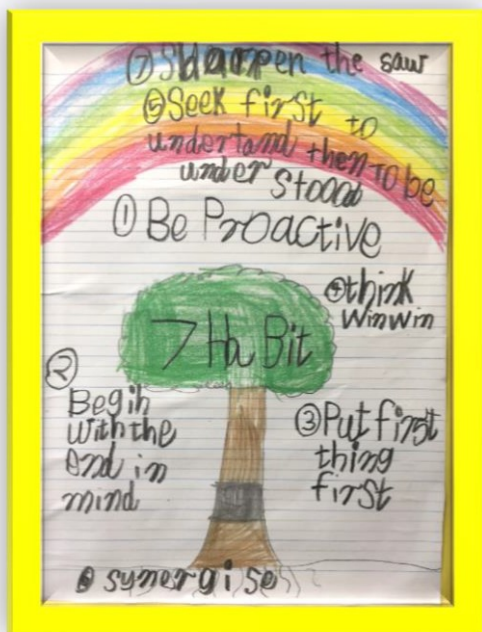 ⑦ Sharpen the saw
⑤ Seek first to
undertand then To be
under stood
① Be Proactive
④ think
Win win
7 Ha Bit
②
Begin
with the
End in
mind
③ Put first
thing
first
⑥ synergise